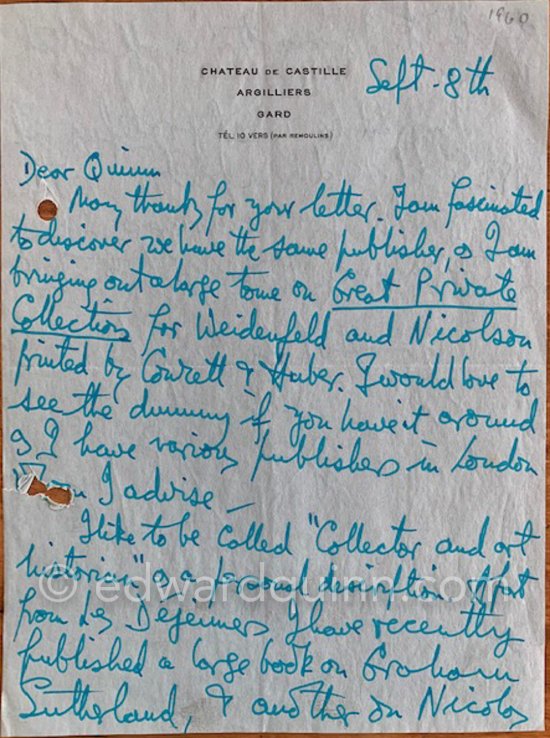 1960
CHATEAU DE CASTILLE
ARGILLIERS
GARD
TÉL. 10 VERS (PAR REMOULINS)
Sept. 8th
Dear Quinn
Many thanks for your letter. I am fascinated
to discover we have the same publisher, as I am
bringing out a large tome on Great Private
Collections for Weidenfeld and Nicolson
printed by Conzett & Huber. I would love to
see the dummy if you have it around
as I have various publishers in London
I advise —
I like to be called "Collector and art
historian" as a personal description. Apart
from Les Déjeuners I have recently
published a large book on Graham
Sutherland, & another on Nicolas
© edwardquinn.com